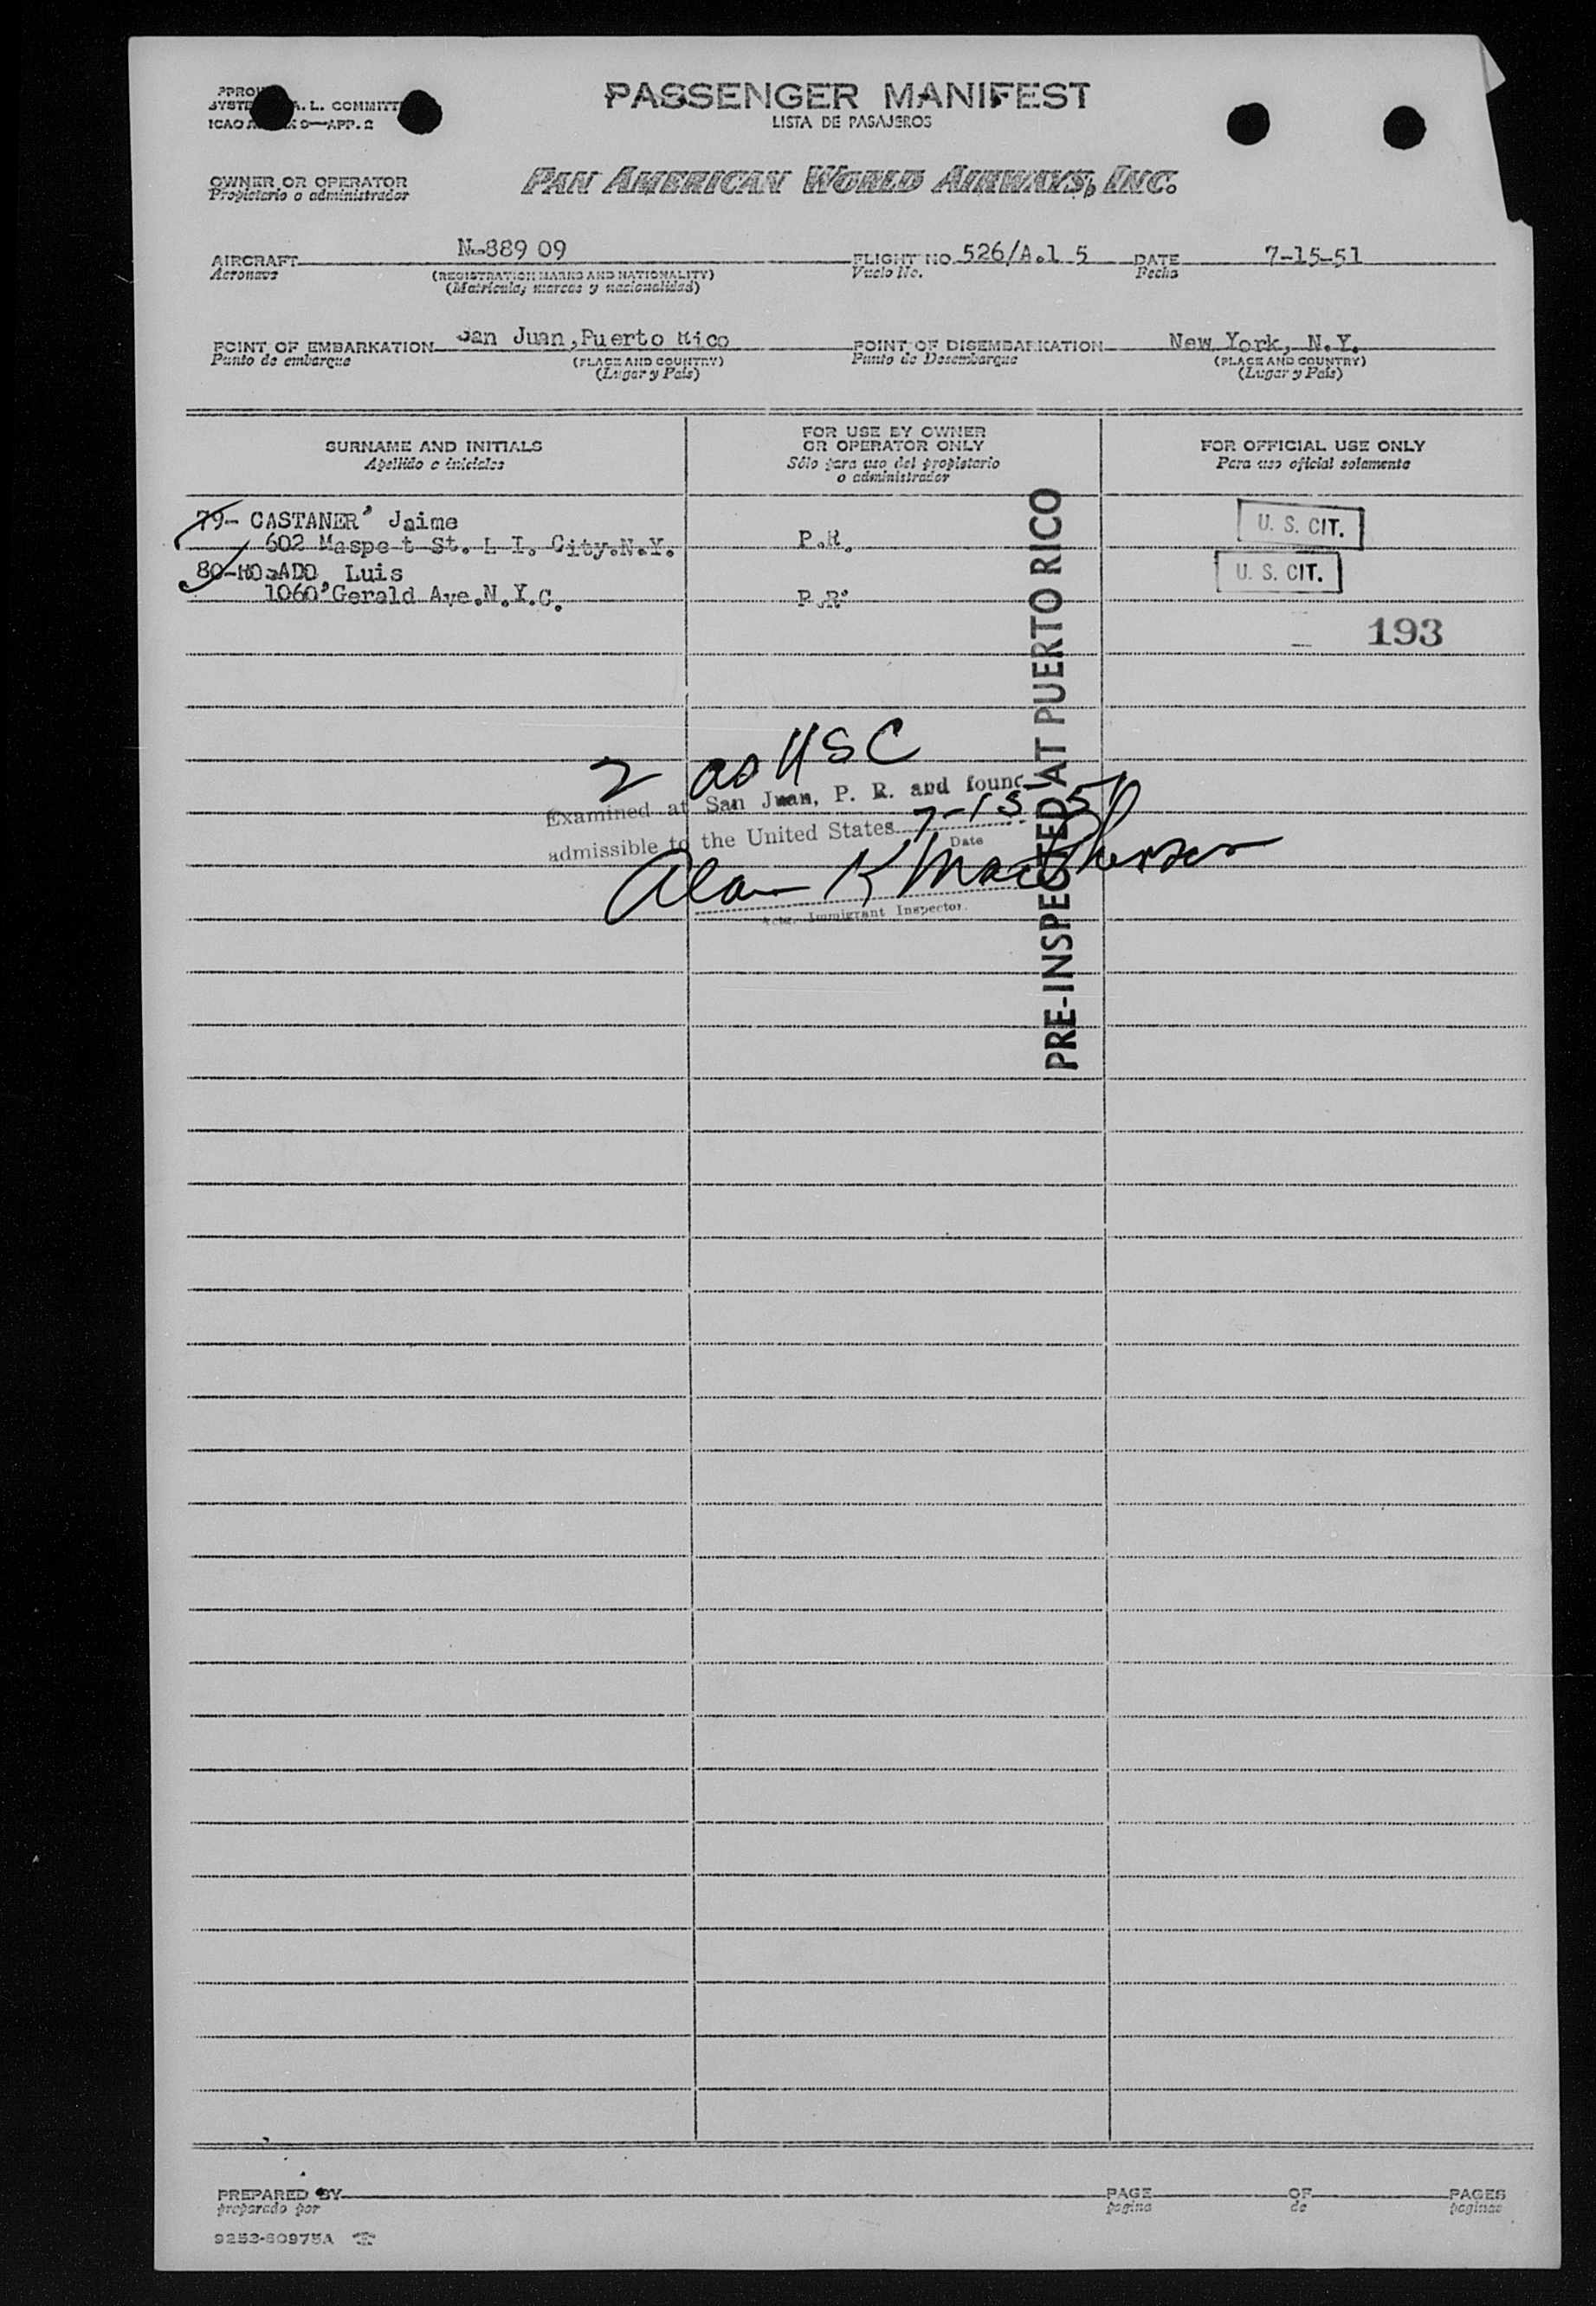 PASSENGER MANIFEST
LISTA DE PASAJEROS
A. L. COMMITT
ICAO 9—APP. 2
OWNER OR OPERATOR
Propietario o administrador
PAN AMERICAN WORLD AIRWAYS, INC.
AIRCRAFT N-889 09 FLIGHT NO 526/A.1 5 DATE 7-15-51
Aeronave (REGISTRATION MARKS AND NATIONALITY) Vuelo No. Fecha
(Matricula; marcas y nacionalidad)
POINT OF EMBARKATION San Juan,Puerto Rico POINT OF DISEMBARKATION New York, N.Y.
Punto de embarque (PLACE AND COUNTRY) Punto de Desembarque (PLACE AND COUNTRY)
(Lugar y País) (Lugar y País)
SURNAME AND INITIALS FOR USE BY OWNER OR OPERATOR ONLY FOR OFFICIAL USE ONLY
Apellido e iniciales Sólo para uso del propietario o administrador Para uso oficial solamente
79- CASTANER, Jaime U. S. CIT.
602 Maspe t St. L I. City.N.Y. P.R.
80- Luis U. S. CIT.
1060 Gerald Ave.N.Y.C. P.R.
193
PRE-INSPECTED AT PUERTO RICO
2 as USC
Examined at San Juan, P. R. and found
admissible to the United States 7-15-51
Date
Alan K MacPherson
Actg. Immigrant Inspector.
PREPARED BY PAGE OF PAGES
preparado por pagina de paginas
9253-60975A